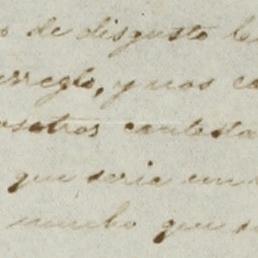 o de disgusto le
arreglo, y nos co
osotros contesta
que seria un
mucho que s